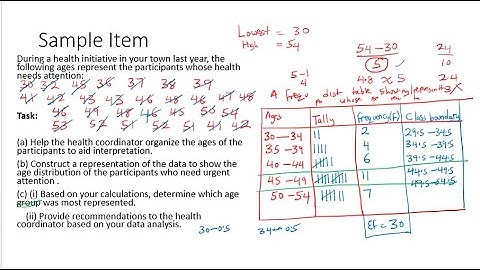 Sample Item
During a health initiative in your town last year, the
following ages represent the participants whose health
needs attention:
30 32 45 36 37 38 39
41 42 43 45 46 46 47 48
46 49 48 46 45 50 54
53 52 52 51 51 41 42
Task:
(a) Help the health coordinator organize the ages of the
participants to aid interpretation.
(b) Construct a representation of the data to show the
age distribution of the participants who need urgent
attention .
(c) (i) Based on your calculations, determine which age
group was most represented.
(ii) Provide recommendations to the health
coordinator based on your data analysis.
30-0.5 34-0.5
Lowest = 30
High = 54
54-30
5
24
10
5-1
4
4.8 ≈ 5
2.4
A frequ dist table showing
Ages Tally frequency(F) Class boundary
30-34 || 2 29.5-34.5
35-39 |||| 4 34.5-39.5
40-44 6 39.5-44.5
45-49 11 44.5-49.5
50-54 7 49.5-54.5
Ef = 30